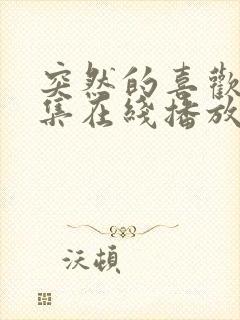 突然的喜歡
集在綫播放
沃頓